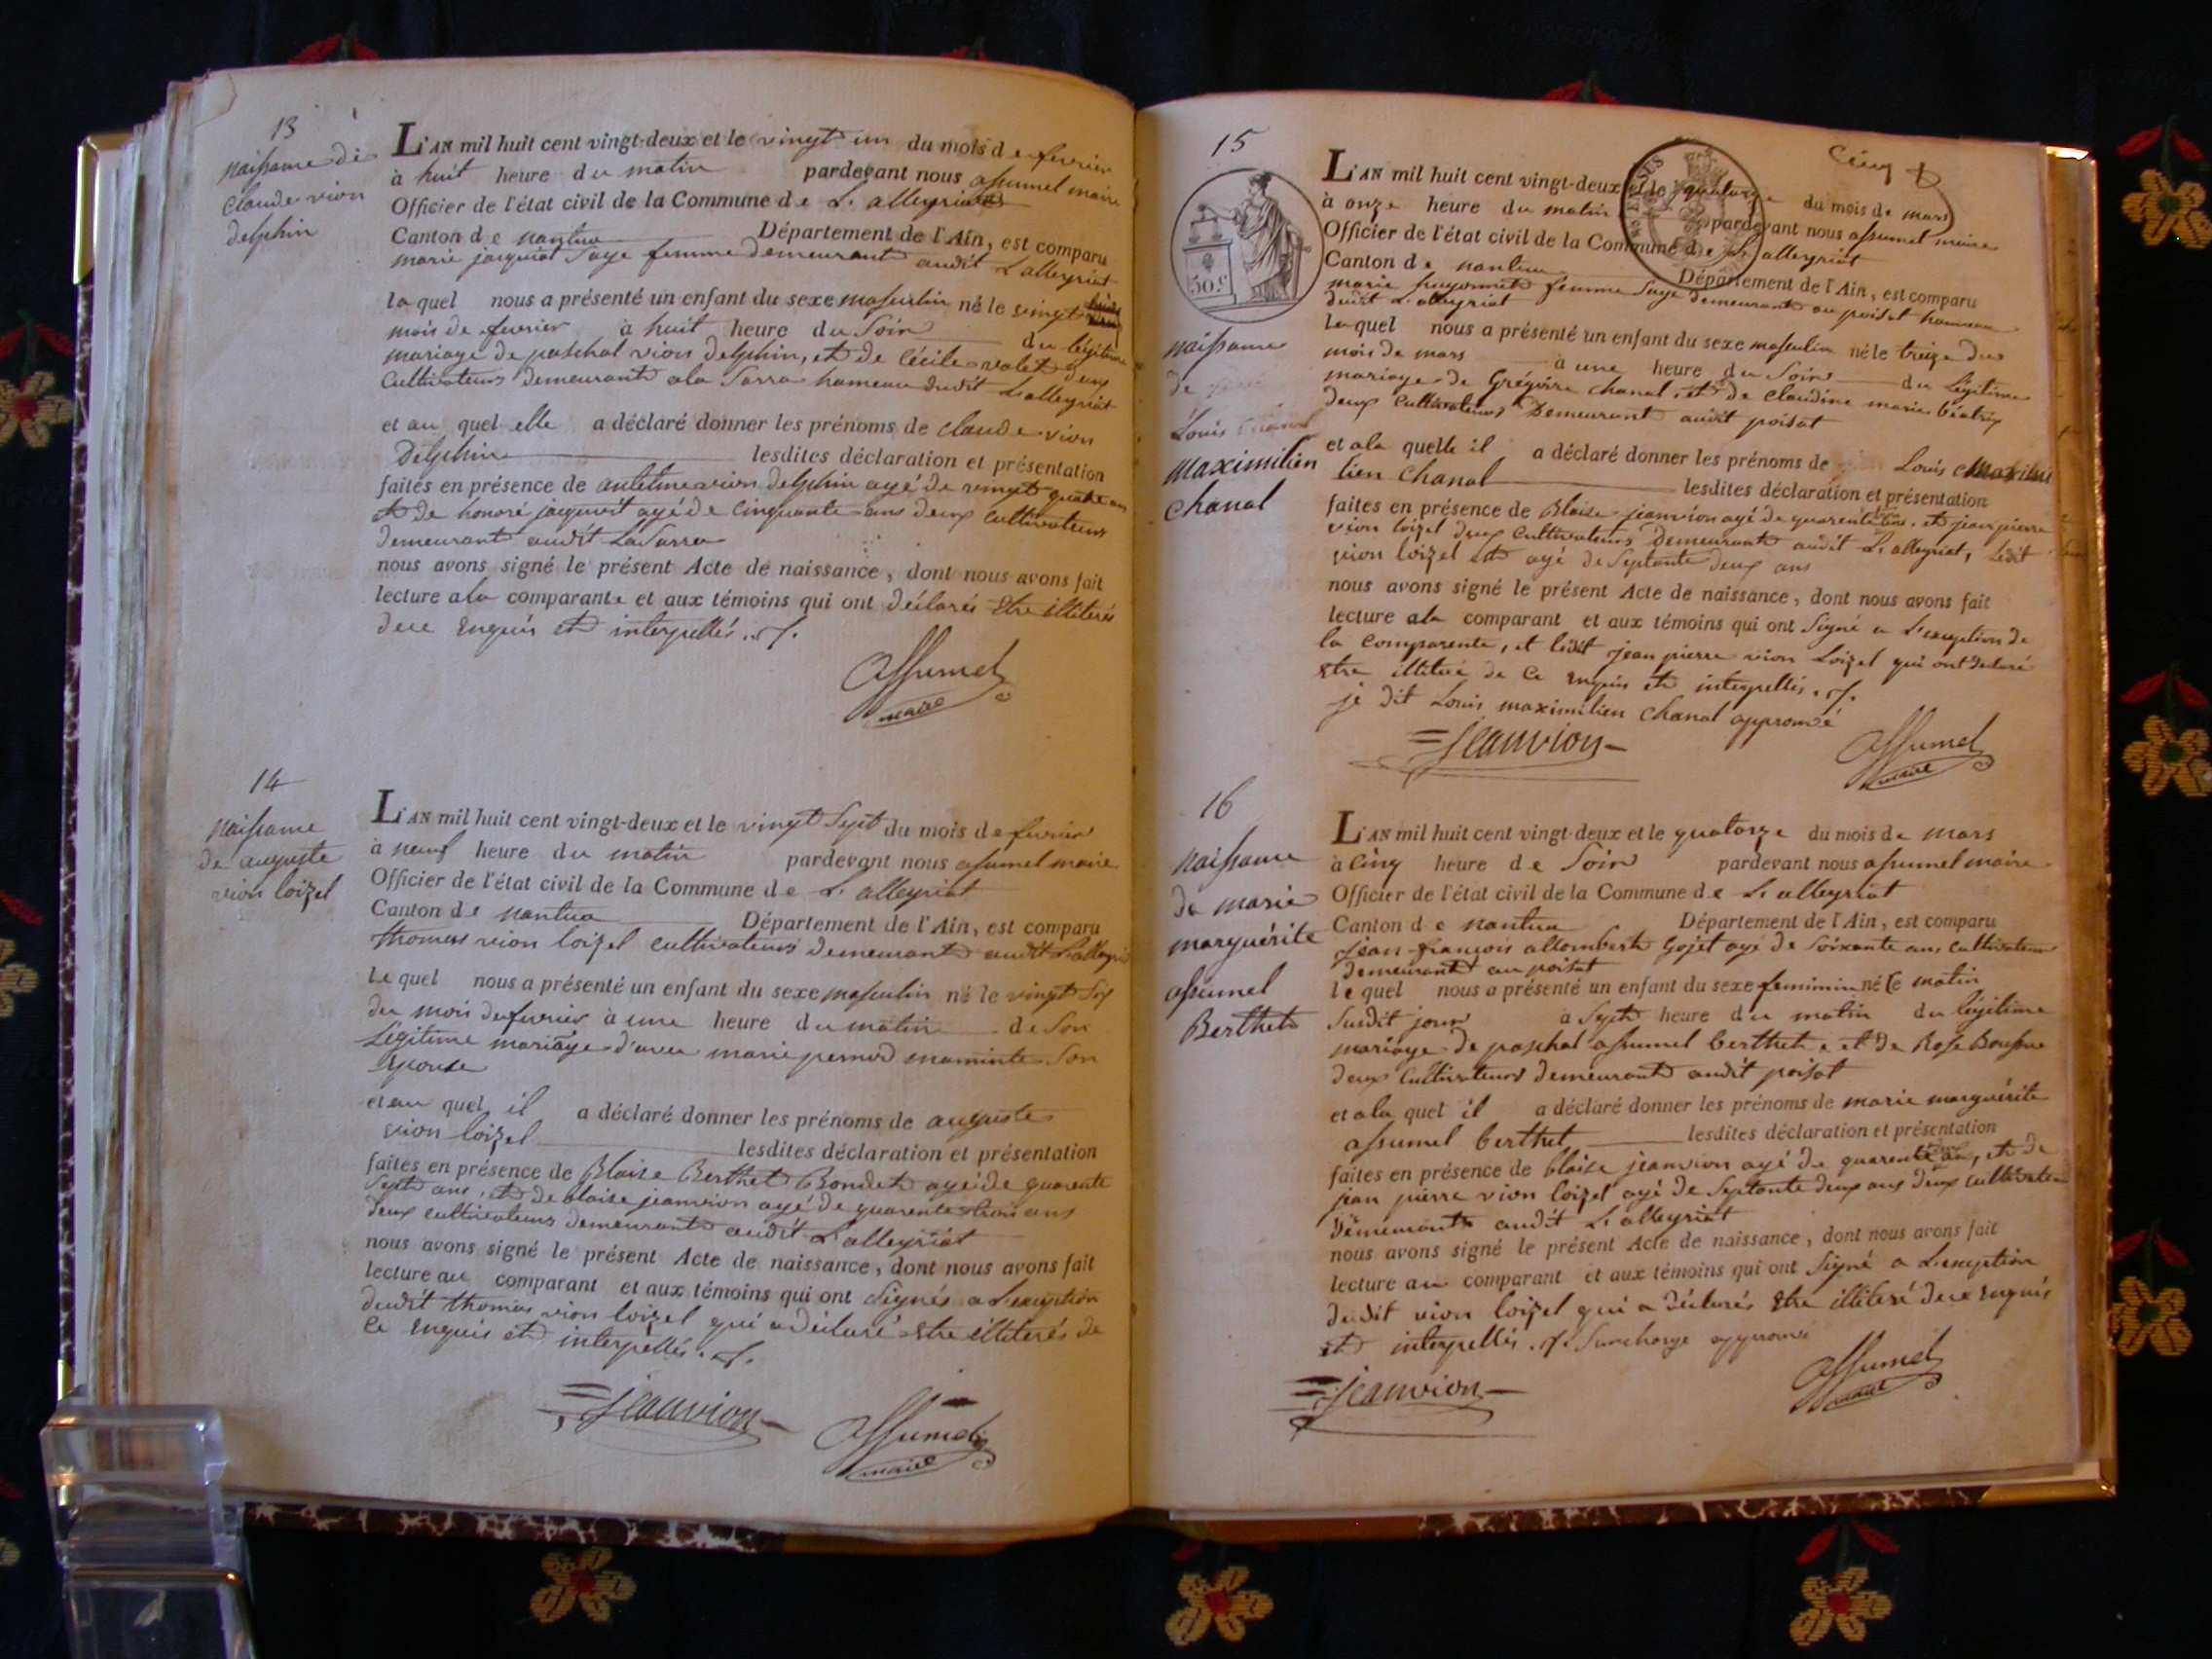 13
naissance de
claude vion
delphin
L'AN mil huit cent vingt-deux et le vingt un du mois de fevrier
à huit heure du matin pardevant nous assumel maire
Officier de l'état civil de la Commune de L. alleyriat
Canton de nantua Département de l'Ain, est comparu
marie jacquiot Sage femme demeurant audit L'alleyriat
laquel nous a présenté un enfant du sexe masculin né le vingt
mois de fevrier à huit heure du Soir du légitime
mariage de paschal vion delphin, et de Cécile valet deux
Cultivateurs demeurant ala Sarra hameau dudit L'alleyriat
et au quel elle a déclaré donner les prénoms de claude vion
Delphin lesdites déclaration et présentation
faites en présence de antelme vion delphin agé de vingt quatre ans
et de honoré jacquiot agé de Cinquante ans deux cultivateurs
demeurant audit LaSarra
nous avons signé le présent Acte de naissance, dont nous avons fait
lecture ala comparante et aux témoins qui ont déclarés Etre illiterés
dece Enquis et interpellés ./.
assumel
maire
14
naissance
de auguste
vion loizel
L'AN mil huit cent vingt-deux et le vingt Sept du mois de fevrier
à neuf heure du matin pardevant nous assumel maire
Officier de l'état civil de la Commune de L. alleyriat
Canton de nantua Département de l'Ain, est comparu
thomas vion loizel cultivateur demeurant audit L'alleyriat
Le quel nous a présenté un enfant du sexe masculin né le vingt Six
du mois de fevrier à une heure du matin de Son
Légitime mariage d'avec marie pernod maminte Son
Epouse
et au quel il a déclaré donner les prénoms de auguste
vion loizel lesdites déclaration et présentation
faites en présence de Blaise Berthet Bondet agé de quarente
Sept ans, et de blaise jeanvion agé de quarente trois ans
deux cultivateurs demeurant audit L'alleyriat
nous avons signé le présent Acte de naissance, dont nous avons fait
lecture au comparant et aux témoins qui ont Signés a L'exception
dudit thomas vion loizel qui a déclaré Etre illiterés de
Ce Enquis et interpellés ./.
jeanvion
assumel
maire
15
50 c.
naissance
de
Louis
maximilien
chanal
Cinq
L'AN mil huit cent vingt-deux et le quatorze du mois de mars
à onze heure du matin pardevant nous assumel maire
Officier de l'état civil de la Commune de L. alleyriat
Canton de nantua Département de l'Ain, est comparu
marie femme Sage demeurant au poisat hameau
dudit L'alleyriat
Laquel nous a présenté un enfant du sexe masculin né le treize du
mois de mars à une heure du Soir du Légitime
mariage de Grégoire chanal, et de Claudine marie béatrix
deux cultivateurs Demeurant audit poisat
et ala quelle il a déclaré donner les prénoms de Louis Maximi
lien Chanal lesdites déclaration et présentation
faites en présence de Blaise jeanvion agé de quarente ans, et jean pierre
vion loizel deux cultivateurs Demeurant audit L. alleyriat, ledit
vion loizel est agé de Septante deux ans
nous avons signé le présent Acte de naissance, dont nous avons fait
lecture ala comparant et aux témoins qui ont Signé a L'exception de
la Comparente, et ledit jean pierre vion Loizel qui ont declaré
Etre illitéré de Ce Enquis et interpellés ./.
je dit Louis maximilien Chanal approuvé
jeanvion
assumel
maire
16
naissance
de marie
marguérite
assumel
Berthet
L'AN mil huit cent vingt-deux et le quatorze du mois de mars
à Cinq heure de Soir pardevant nous assumel maire
Officier de l'état civil de la Commune de L. alleyriat
Canton de nantua Département de l'Ain, est comparu
jean françois allombert Gojet agé de Soixante ans, cultivateur
demeurant au poisat
lequel nous a présenté un enfant du sexe feminin né le matin
Susdit jour à Sept heure du matin du légitime
mariage de paschal assumel berthet et de Rose
deux Cultivateurs demeurant audit poisat
et ala quel il a déclaré donner les prénoms de marie marguérite
assumel berthet lesdites déclaration et présentation
faites en présence de blaise jeanvion agé de quarente ans, et de
jean pierre vion loizel agé de Septante deux ans deux cultivateur
Demeurants audit L. alleyriat
nous avons signé le présent Acte de naissance, dont nous avons fait
lecture au comparant et aux témoins qui ont Signé a L'exception
dudit vion loizel qui a déclarés Etre illiteré dece Enquis
et interpellés ./. Surcharge approuvé
jeanvion
assumel
maire